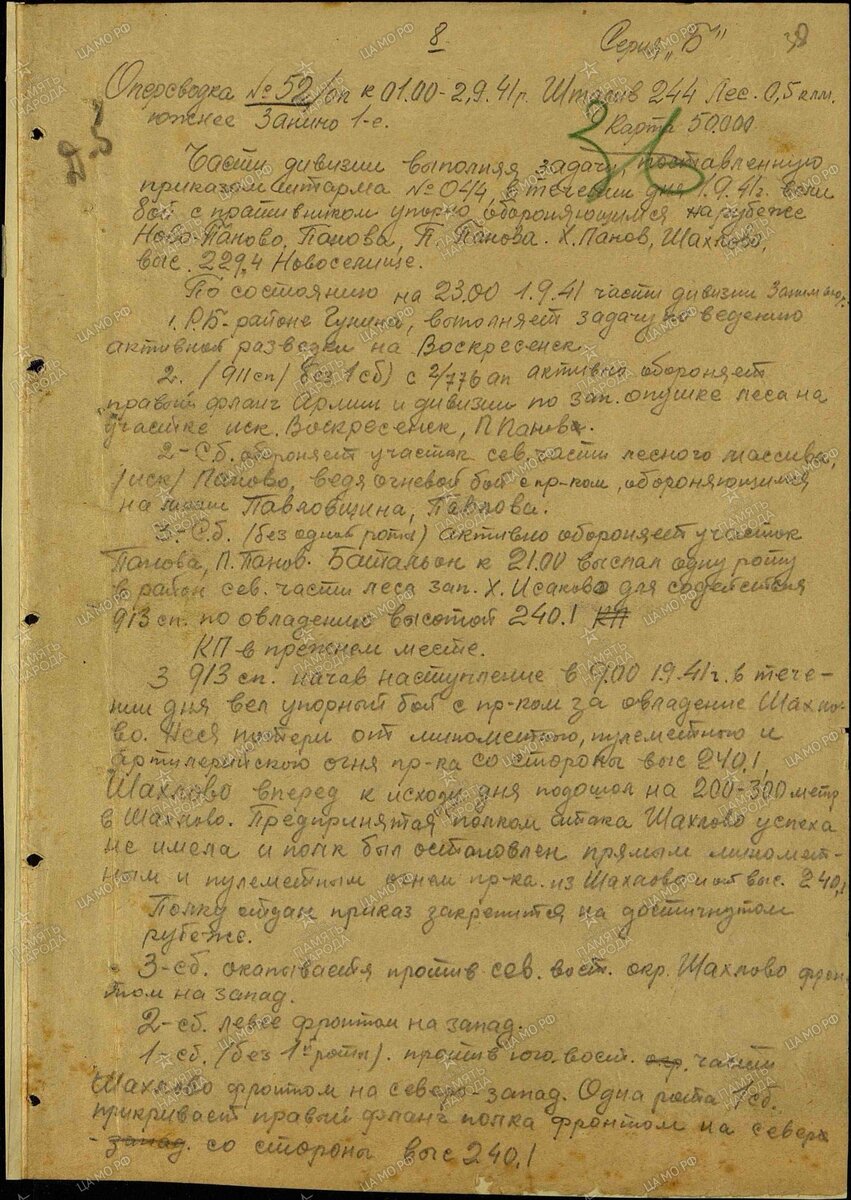 8
Серия „Б"
Оперсводка № 52/оп к 01.00 - 2.9.41г. Штадив 244 Лес. 0,5 клм.
южнее Занино 1-е.
Карта 50.000
Части дивизии выполняя задачу, поставленную
приказом штарма № 044 в течении дня 1.9.41г. вели
бой с противником упорно обороняющимся на рубеже
Ново-Паново, Панова, П. Панова. Х. Панов, Шахлово,
выс. 229,4 Новоселище.
По состоянию на 23.00 1.9.41 части дивизии
1. РБ - районе Гунина, выполняет задачу по ведению
активной разведки на Воскресенск
2. /911 сп/ без 1 сб) с 2/776 ап активно обороняет
правый фланг Армии и дивизии по зап. опушке леса на
участке иск. Воскресенск, П. Панов.
2-Сб. обороняет участок сев. части лесного массива,
/иск/ Паново, ведя огневой бой с пр-ком, обороняющимся
на линии Павловщина, Павлова.
3-Сб. (без одной роты) активно обороняет участок
Панова, П. Панов. Батальон к 21.00 выслал одну роту
в район сев. части леса зап. Х. Исаково для содействия
913 сп. по овладению высотой 240.1 КП
КП в прежнем месте.
3 913 сп. начав наступление в 9.00 1.9.41г. в тече-
нии дня вел упорный бой с пр-ком за овладение Шахло-
во. Неся потери от минометного, пулеметного и
артилерийского огня пр-ка со стороны выс 240,1,
Шахлово вперед к исходу дня подошол на 200-300 метр
в Шахлово. Предпринятая полком атака Шахлово успеха
не имела и полк был остановлен прямым миномет-
ным и пулеметным огнем пр-ка. из Шахлово и от выс. 240,1
Полку отдан приказ закрепится на достигнутом
рубеже.
3-сб. окапывается против сев. вост. окр. Шахлово фрон-
том на запад.
2-сб. левее фронтом на запад.
1-сб. (без 1й роты). против юго. вост. окр. части
Шахлово фронтом на северо-запад. Одна рота 1 сб.
прикривает правый фланг полка фронтом на север
- запад. со стороны выс 240,1